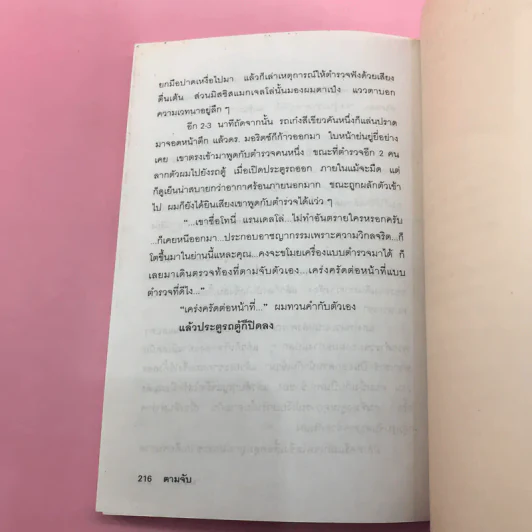 ยกมือปาดเหงื่อไปมา แล้วก็เล่าเหตุการณ์ให้ตำรวจฟังด้วยเสียง
ตื่นเต้น ส่วนมิสซิสแมกเจลโล่นั้นมองผมตาเป๋ง แววตาบอก
ความเวทนาอยู่ลึก ๆ
อีก 2-3 นาทีถัดจากนั้น รถเก๋งสีเขียวคันหนึ่งก็แล่นปราด
มาจอดหน้าตึก แล้วดร. มอริตซ์ก็ก้าวออกมา ใบหน้าย่นยู่ยี่อย่าง
เคย เขาตรงเข้ามาพูดกับตำรวจคนหนึ่ง ขณะที่ตำรวจอีก 2 คน
ลากตัวผมไปยังรถตู้ เมื่อเปิดประตูรถออก ภายในแม้จะมืด แต่
ก็ดูเย็นน่าสบายกว่าอากาศร้อนภายนอกมาก ขณะถูกผลักตัวเข้า
ไป ผมก็ยังได้ยินเสียงเขาพูดกับตำรวจได้แว่ว ๆ
"...เขาชื่อโทนี่ แรนเดลโล่...ไม่ทำอันตรายใครหรอกครับ
...ก็เคยหนีออกมา...ประกอบอาชญากรรมเพราะความวิกลจริต...ก็
โตขึ้นมาในย่านนี้แหละคุณ...คงจะขโมยเครื่องแบบตำรวจมาได้ ก็
เลยมาเดินตรวจท้องที่ตามจับตัวเอง...เคร่งครัดต่อหน้าที่แบบ
ตำรวจที่ดีไง..."
"เคร่งครัดต่อหน้าที่..." ผมทวนคำกับตัวเอง
แล้วประตูรถตู้ก็ปิดลง
216 ตามจับ